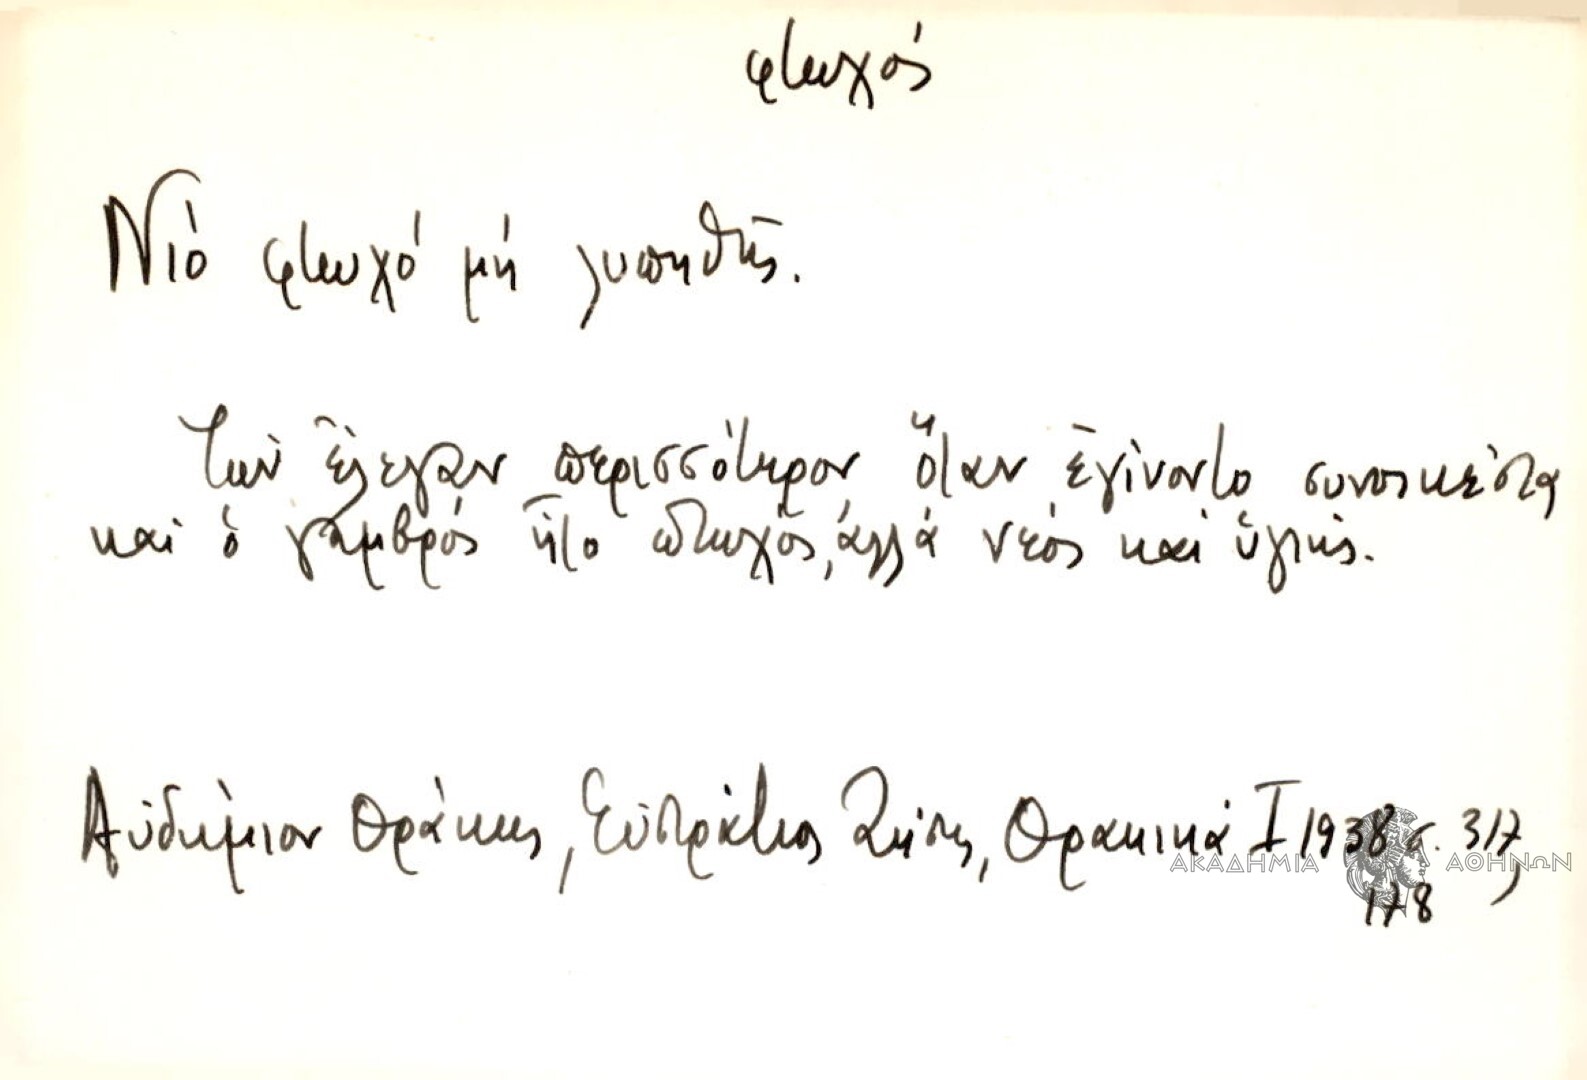 φτωχός
Νιό φτωχό μή λυπηθῆς.
Τὸν ἔλεγαν περισσότερον, ὅταν ἐγίνοντο συνοικέσια
καὶ ὁ γαμβρός ἦτο πτωχός, ἀλλά νέος καὶ ὑγιής.
Αὐδήμιον Θράκης, Εὐστράτιος Ζήσης, Θρακικά Ι 1938 σ. 317,
178
ΑΚΑΔΗΜΙΑ ΑΘΗΝΩΝ